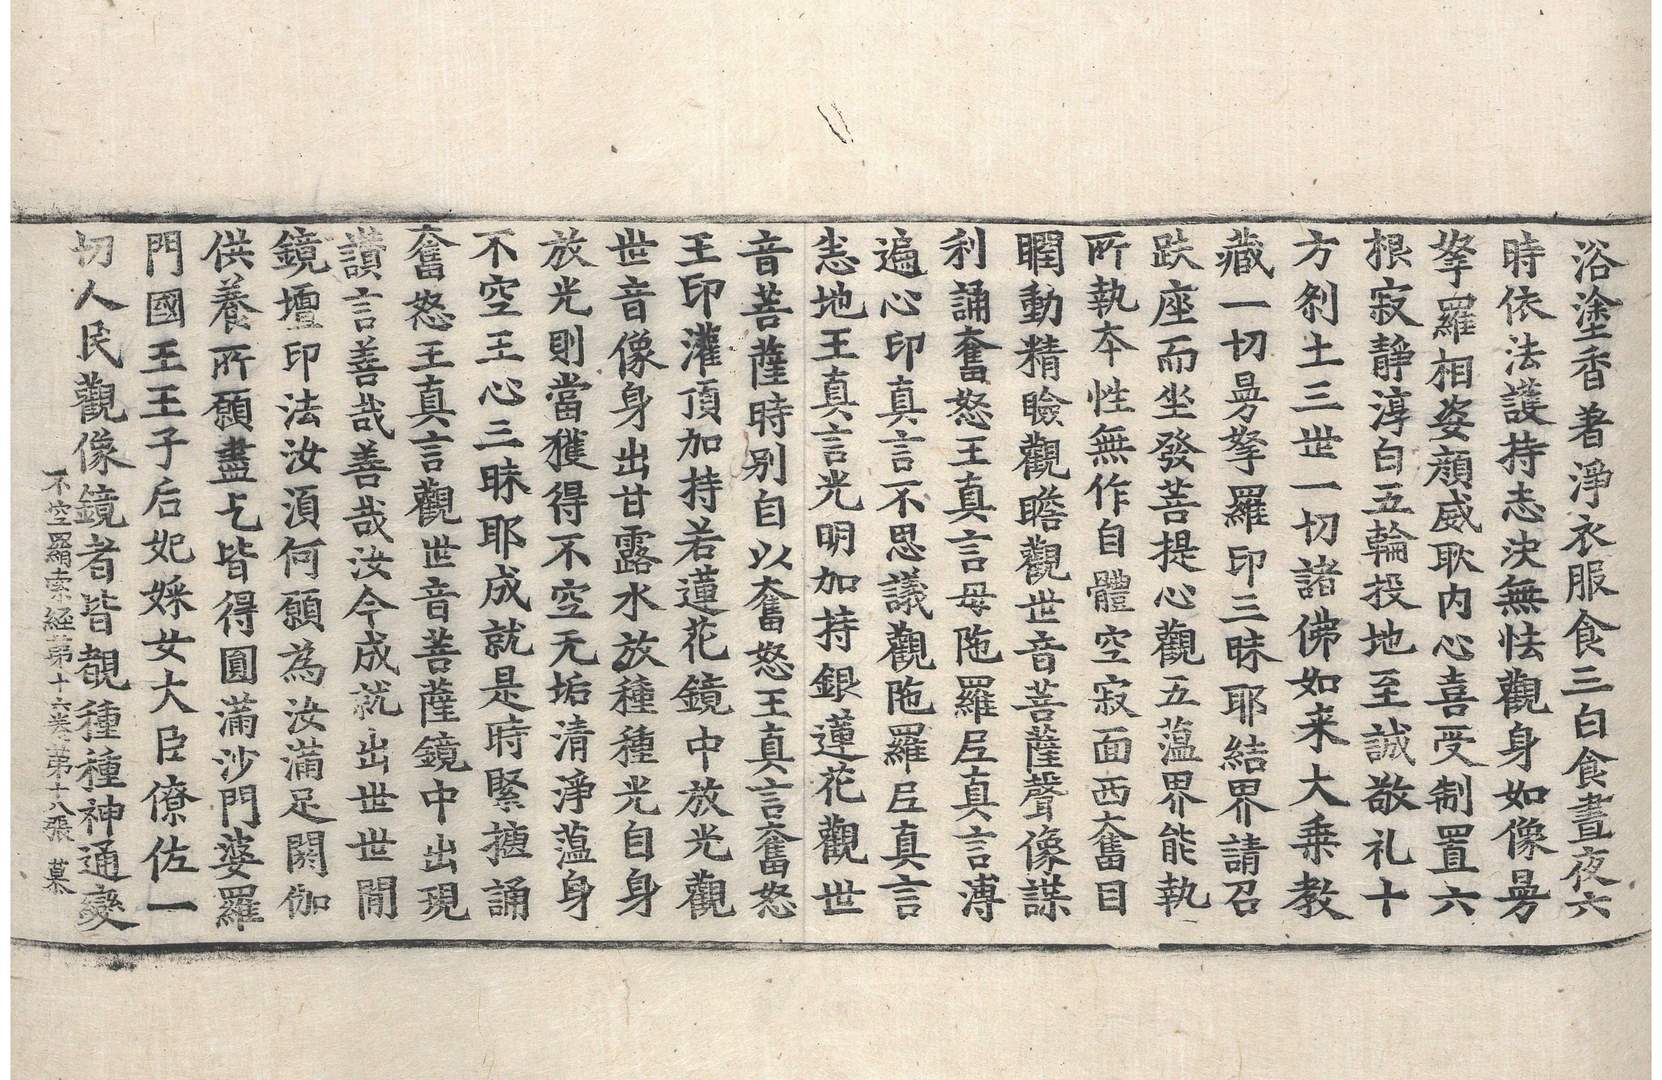 浴塗香著淨衣服食三白食晝夜六
時依法護持志決無怯觀身如像曼
拏羅相姿顏威耿內心喜受制置六
根寂靜淳白五輪投地至誠敬礼十
方刹土三世一切諸佛如来大乗教
藏一切曼拏羅印三昧耶結界請召
趺座而坐發菩提心觀五蘊界能執
所執本性無作自體空寂面西奮目
瞤動精瞼觀瞻觀世音菩薩聲像謀
利誦奮怒王真言母陁羅尼真言溥
遍心印真言不思議觀陁羅尼真言
悉地王真言光明加持銀蓮花觀世
音菩薩時别自以奮怒王真言奮怒
王印灌頂加持若蓮花鏡中放光觀
世音像身出甘露水放種種光自身
放光則當獲得不空无垢清淨蘊身
不空王心三昧耶成就是時緊擿誦
奮怒王真言觀世音菩薩鏡中出現
讃言善哉善哉汝今成就出世世間
鏡壇印法汝湏何願為汝滿足閼伽
供養所願盡乞皆得圓滿沙門婆羅
門國王王子后妃婇女大臣僚佐一
切人民觀像鏡者皆覩種種神通變
不空羂索經第十六卷第十八張 慕